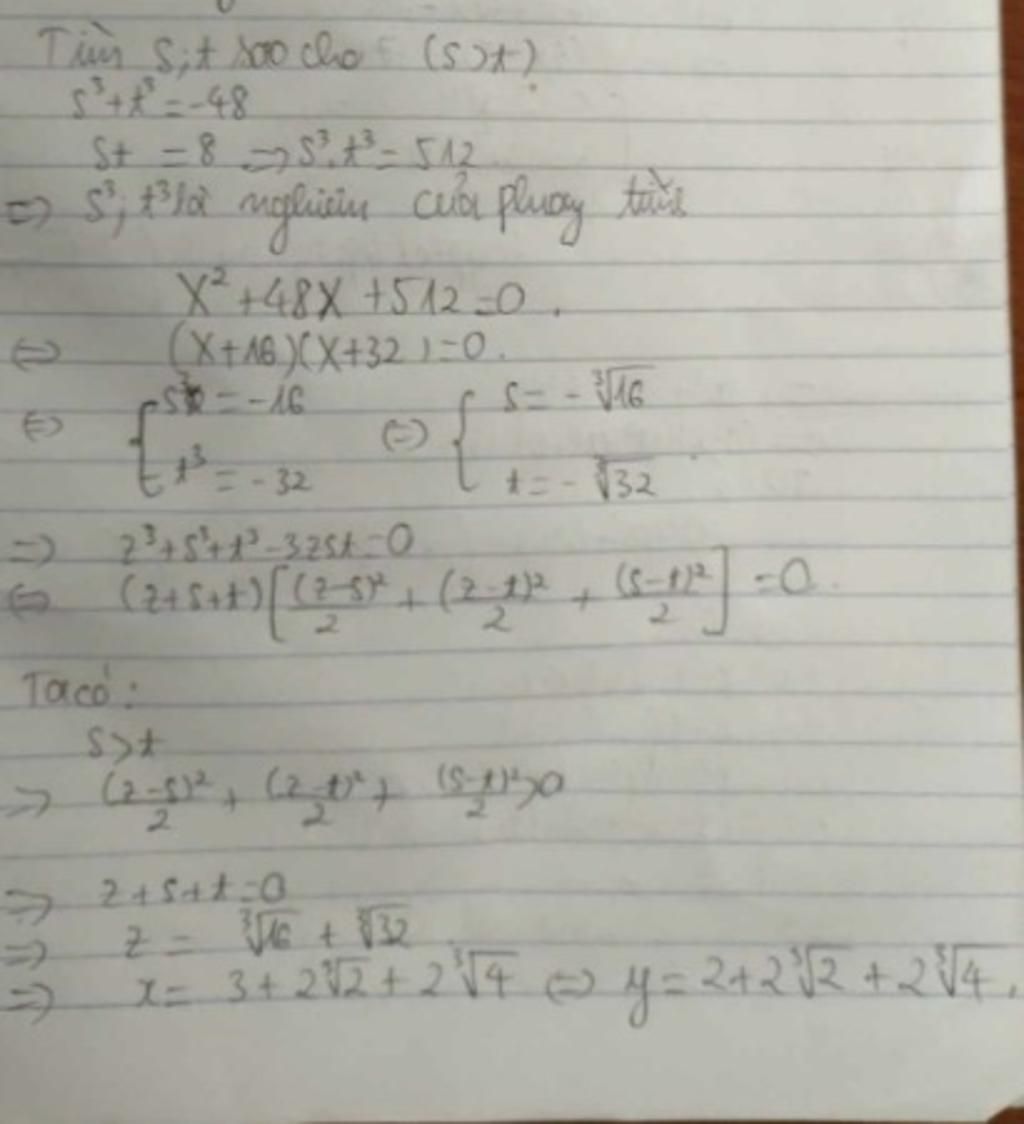 Tìm s;t sao cho (s>t)
s³+t³=-48
st = 8 ⇒ s³.t³ = 512
⇒ s³; t³ là nghiệm của phương trình
X²+48X+512=0.
⇔ (X+16)(X+32)=0.
⇔ { s³ = -16 ⇔ { s = -∛16
t³ = -32 t = -∛32
⇒ z³+s³+t³-3zst=0
⇔ (z+s+t)[(z-s)²/2 + (z-t)²/2 + (s-t)²/2] =0.
Ta có:
s>t
⇒ (z-s)²/2 + (z-t)²/2 + (s-t)²/2 >0
⇒ z+s+t=0
⇒ z = ∛16 + ∛32
⇒ x = 3+2∛2+2∛4 ⇔ y=2+2∛2+2∛4.